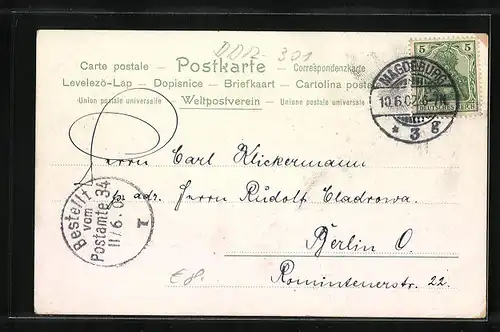 DDR- 301
Carte postale – Postkarte – Correspondenzkarte
Levelező-Lap – Dopisnice – Briefkaart – Cartolina postale
Union postale universelle Weltpostverein – Unione postale universale
5 5
DEUTSCHES REICH
MAGDEBURG
10.6.02.6-7N
* 3 g
Herrn Carl Klickermann
pr. adr. Herrn Rudolf Cladrowa.
Bestellt
vom
Postamte 34
11/6.0
I
Berlin O.
Romintenerstr. 22.